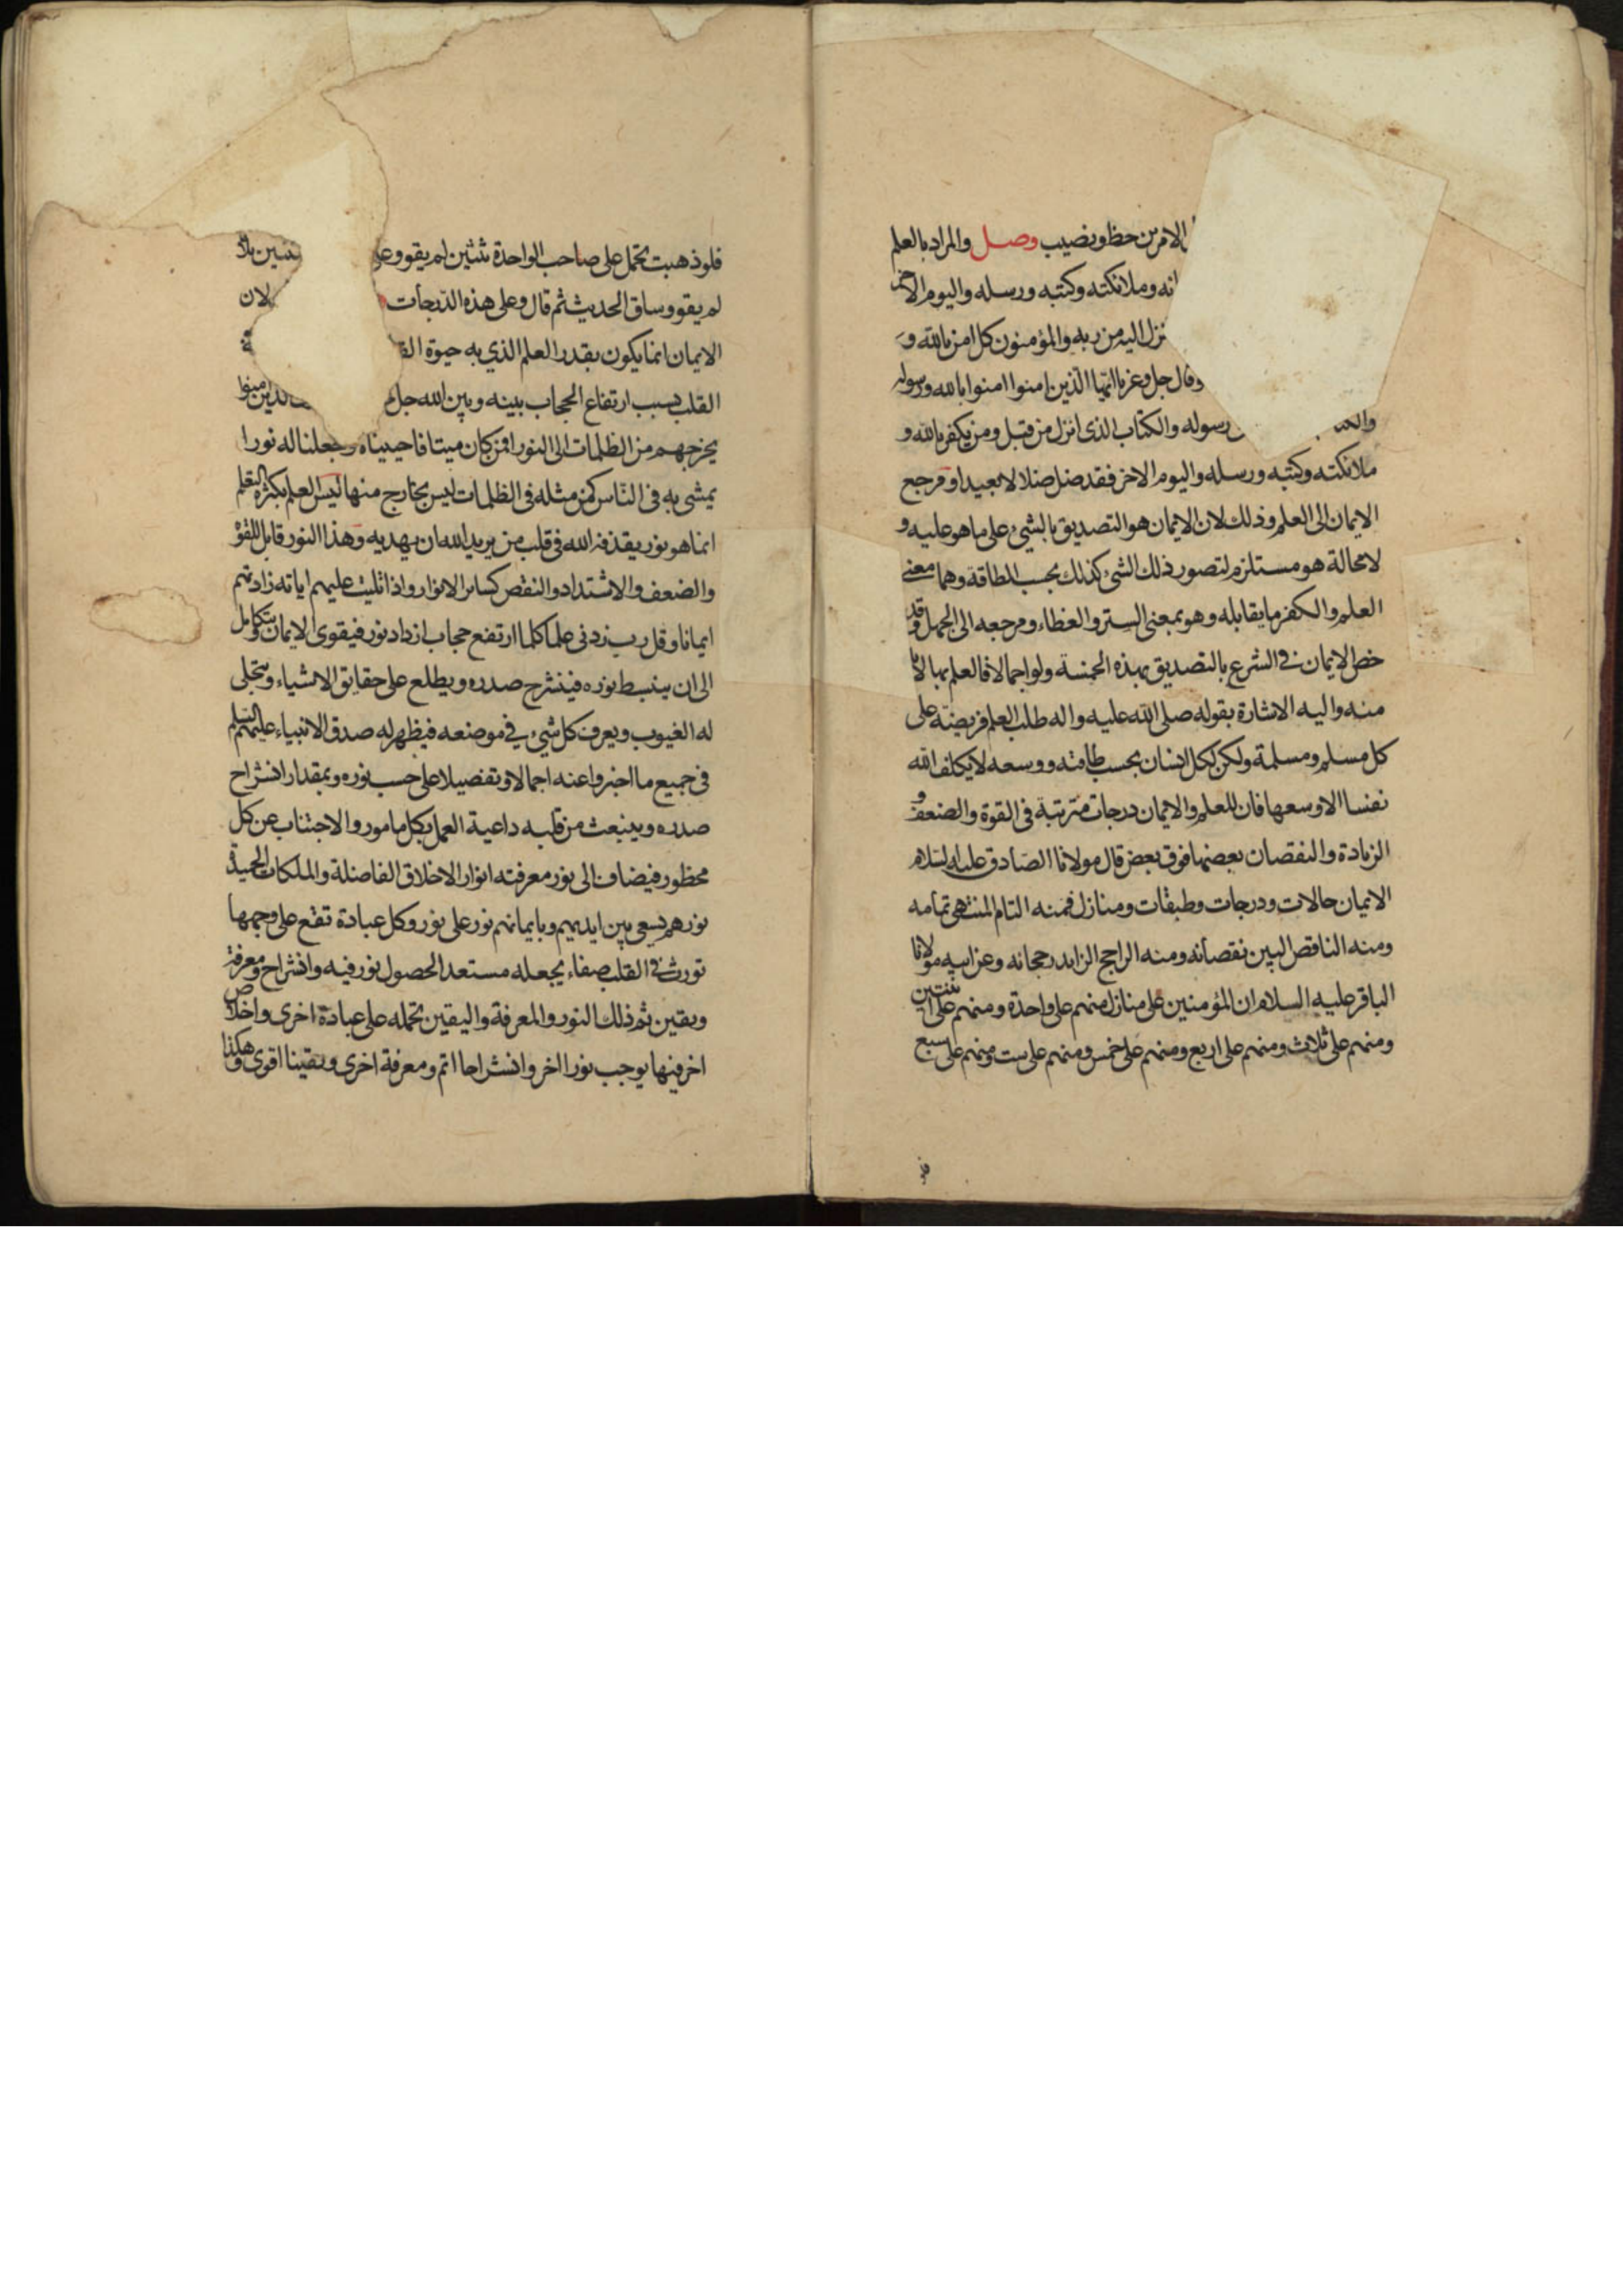 الامرين حظ ونصيب وصل والمراد بالعلم
انه وملائكته وكتبه ورسله واليوم الاخر
نزل اليه من ربه والمؤمنون كل امن بالله و
وقال جل وعز يا ايها الذين امنوا امنوا بالله ورسوله
رسوله والكتاب الذى انزل من قبل ومن يكفر بالله و
ملائكته وكتبه ورسله واليوم الاخر فقد ضل ضلالا بعيدا ومرجع
الايمان الى العلم وذلك لان الايمان هو التصديق بالشئ على ما هو عليه و
لا محالة هو مستلزم لتصور ذلك الشئ كذلك بحسب الطاقة وهما معنى
العلم والكفر ما يقابله وهو بمعنى الستر والغطاء ومرجعه الى الجهل وقد
خص الايمان فى الشرع بالتصديق بهذه الخمسة ولو اجمالا فالعلم بها لا بد
منه واليه الاشارة بقوله صلى الله عليه واله طلب العلم فريضة على
كل مسلم ومسلمة ولكن لكل انسان بحسب طاقته ووسعه لا يكلف الله
نفسا الا وسعها فان للعلم والايمان درجات مترتبة فى القوة والضعف و
الزيادة والنقصان بعضها فوق بعض قال مولانا الصادق عليه السلام
الايمان حالات ودرجات وطبقات ومنازل فمنه التام المنتهى تمامه
ومنه الناقص البين نقصانه ومنه الراجح الزايد رجحانه وعن ابيه مولانا
الباقر عليه السلام ان المؤمنين على منازل منهم على واحدة ومنهم على اثنتين
ومنهم على ثلاث ومنهم على اربع ومنهم على خمس ومنهم على ست ومنهم على سبع
فلو ذهبت تحمل على صاحب الواحدة ثنتين لم يقو وعلى
لم يقو وساق الحديث ثم قال وعلى هذه الدرجات لان
الايمان انما يكون بقدر العلم الذي به حيوة
القلب بسبب ارتفاع الحجاب بينه وبين الله جل الذين امنوا
يخرجهم من الظلمات الى النور افمن كان ميتا فاحييناه وجعلنا له نورا
يمشى به فى الناس كمن مثله فى الظلمات ليس بخارج منها ليس العلم بكثرة التعلم
انما هو نور يقذفه الله فى قلب من يريد الله ان يهديه وهذا النور قابل للقوة
والضعف والاشتداد والنقص كساير الانوار واذا تليت عليهم اياته زادتهم
ايمانا وقل رب زدنى علما كلما ارتفع حجاب ازداد نور فيقوى الايمان ويتكامل
الى ان ينبسط نوره فينشرح صدره ويطلع على حقايق الاشياء وتتجلى
له الغيوب ويعرف كل شئ فى موضعه فيظهر له صدق الانبياء عليهم السلم
فى جميع ما اخبروا عنه اجمالا وتفصيلا على حسب نوره وبمقدار انشراح
صدره وينبعث من قلبه داعية العمل بكل مامور والاجتناب عن كل
محظور فيضاف الى نور معرفته انوار الاخلاق الفاضلة والملكات الحميدة
نورهم يسعى بين ايديهم وبايمانهم نور على نور وكل عبادة تقع على وجهها
تورث فى القلب صفاء يجعله مستعدا لحصول نور فيه وانشراح ومعرفة
ويقين ثم ذلك النور والمعرفة واليقين تحمله على عبادة اخرى واخلاص
اخر فيها يوجب نورا اخر وانشراحا اتم ومعرفة اخرى ويقينا اقوى وهكذا